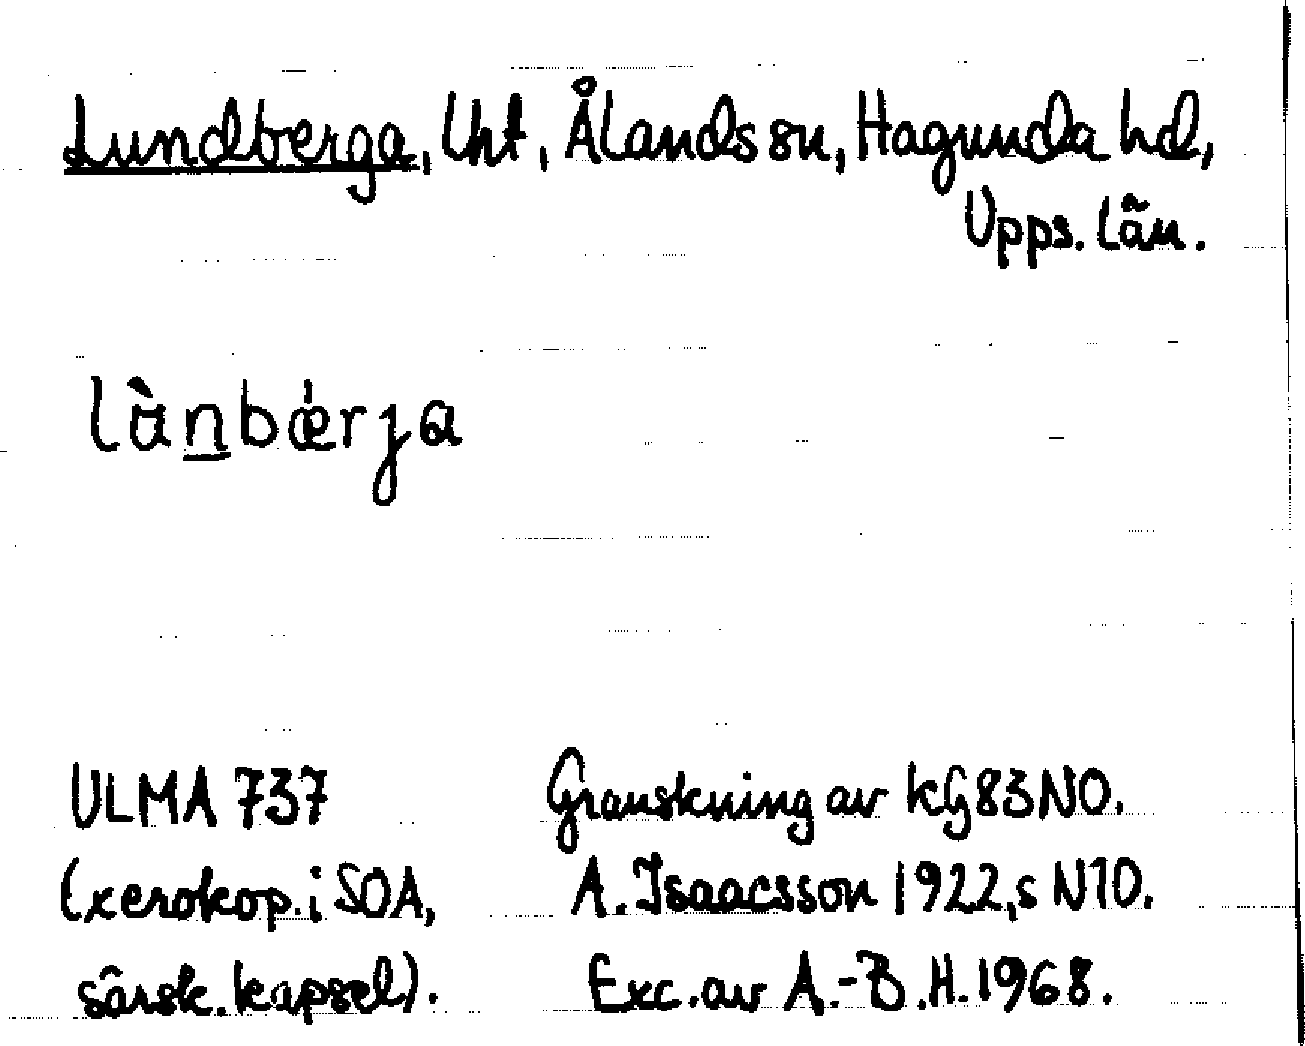 Lundberga, Uht, Ålands sn, Hagunda hd,
Upps. län.
lànbǽrja
ULMA 737
(xerokop. i SOA,
särsk. kapsel).
Granskning av kG83NO.
A. Isaacsson 1922, s N10.
Exc. av A.-B.H. 1968.